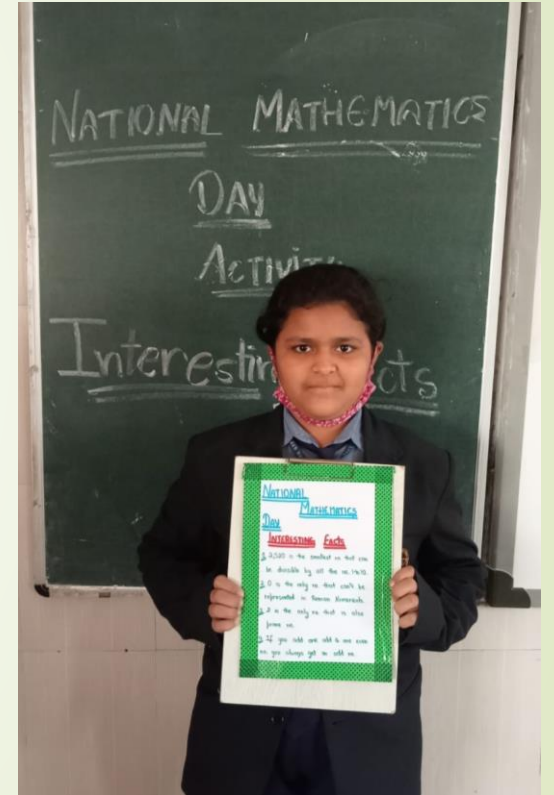 NATIONAL MATHEMATICS
DAY
ACTIVIT
Interestin cts
NATIONAL
MATHEMATICS
DAY
INTERESTING Facts
2,520 is the smallest no that can
be divisible by all the no. 1 to 10.
0 is the only no that can't be
represented in Roman Numerals.
2 is the only no that is also
prime no.
If you add one odd & one even
no you always get an odd no.